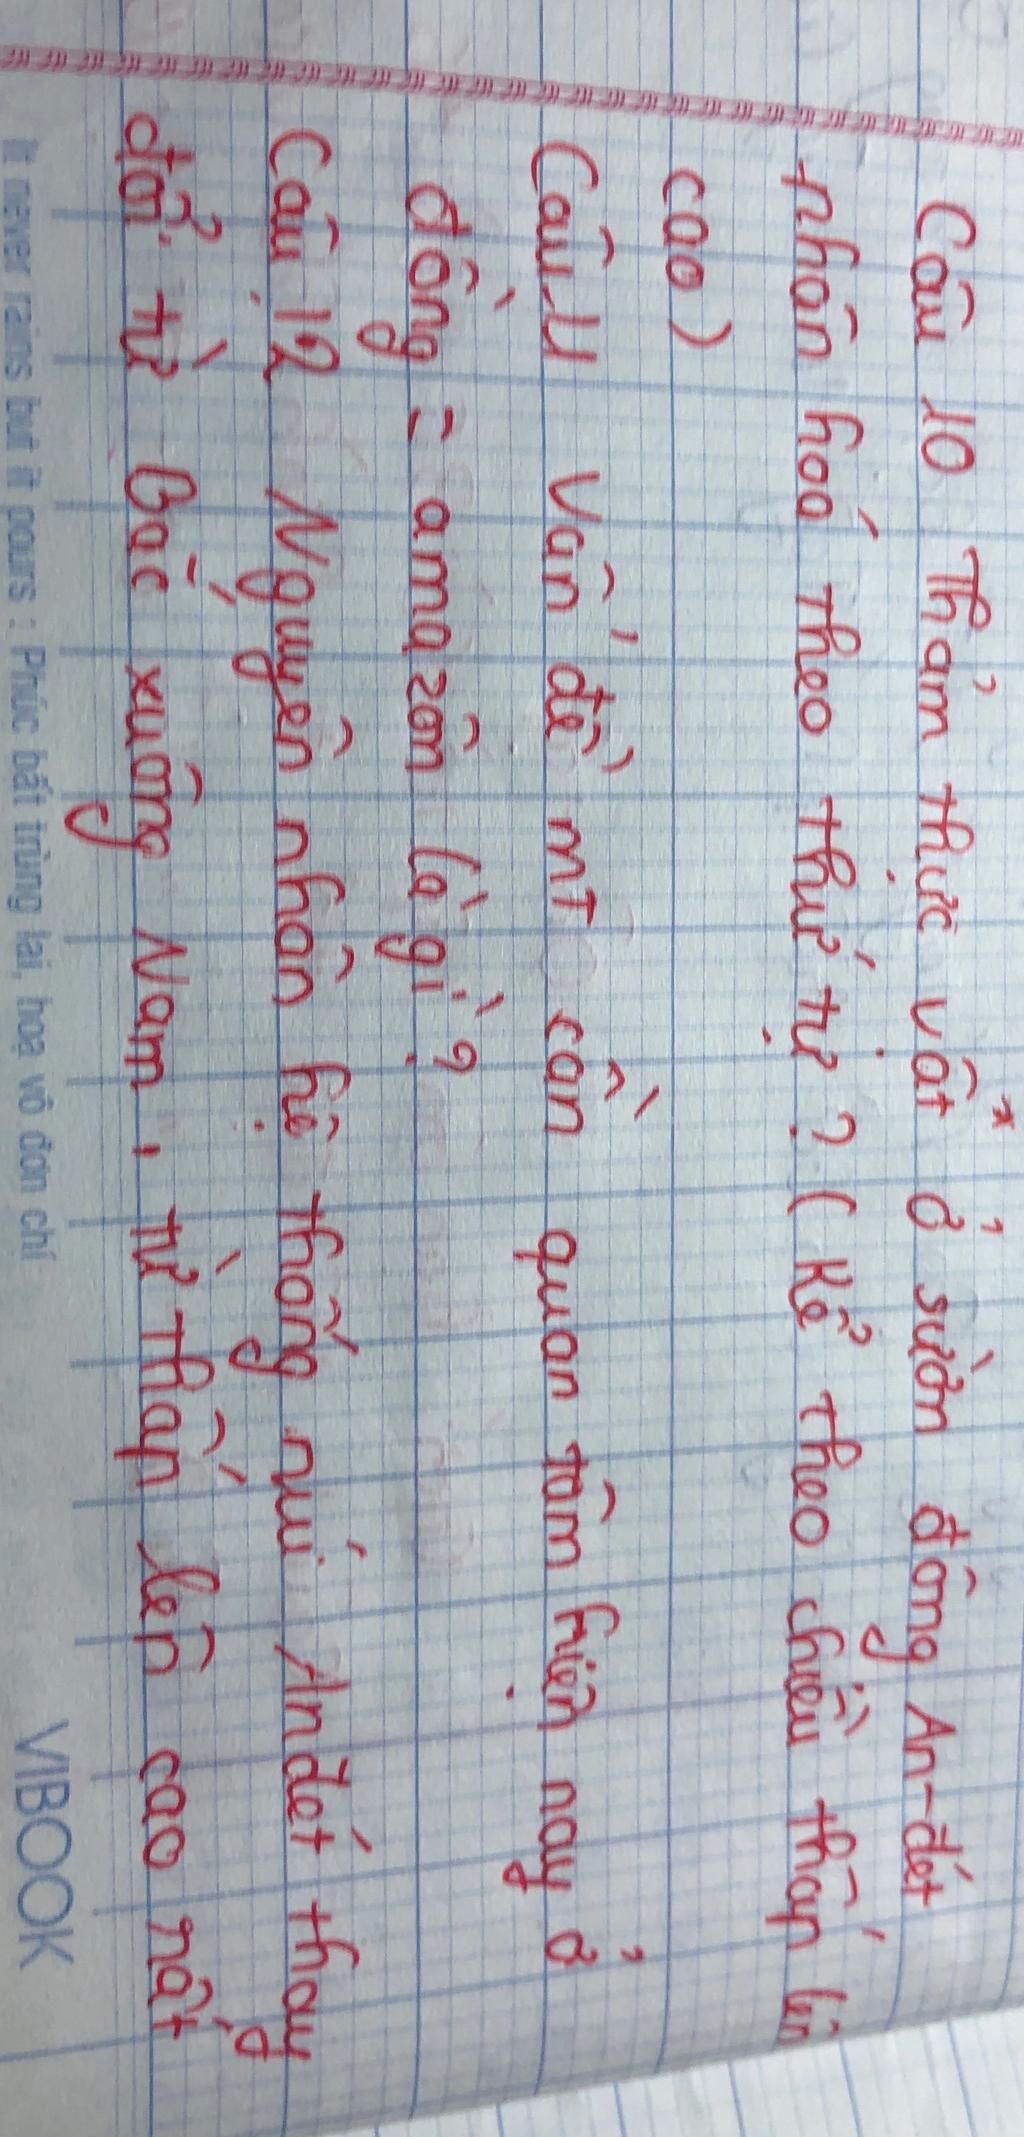 Câu 10 Thảm thực vật ở sườn đông An-đét
nhân hoá theo thứ tự ? ( Kể theo chiều thấp lên
cao )
Câu 11 Vấn đề MT cần quan tâm hiện nay ở
đồng = amazôn là gì ?
Câu 12 Nguyên nhân hệ thống núi Anđét thay
đổi từ Bắc xuống Nam , từ thấp lên cao nhất
It never rains but it pours : Phúc bất trùng lai, hoạ vô đơn chí
VIBOOK